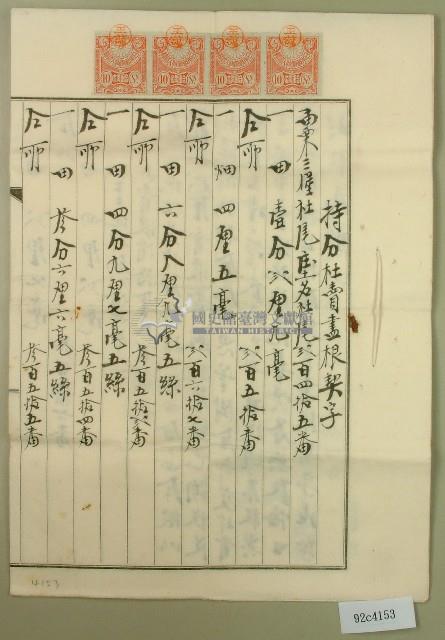 持分杜賣盡根契字
西東三堡社尾庄社尾弍百四拾五番
一 田 壹分弍厘九毫
仝所 弍百五拾五番
一 畑 四厘五毫
仝所 弍百六拾七番
一 田 六分八厘九毫五絲
仝所 叁百五拾弍番
一 田 四分九厘七毫五絲
仝所 叁百五拾四番
一 田 叁分六厘六毫五絲
仝所 叁百五拾五番
國史館臺灣文獻館
TAIWAN HISTORICA
4153
92c4153